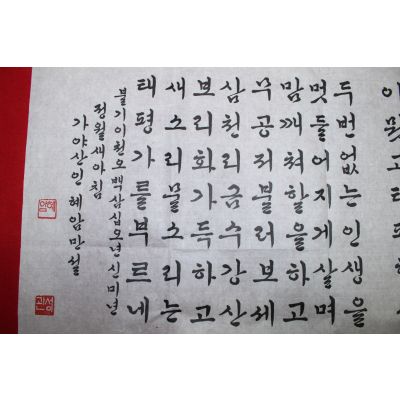 두번없는인생을
멋들어지게살며
맘깨쳐할을하고
무공저불러보세
삼천리금수강산
보리화가득하고
새소리물소리는
태평가를부르네
불기이천오백삼십오년신미년
정월새아침
가야산인혜암만설
혜암
성관